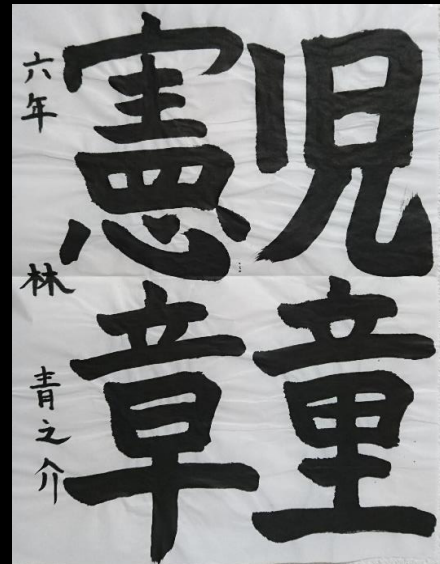 児童
憲章
六年 林 青之介